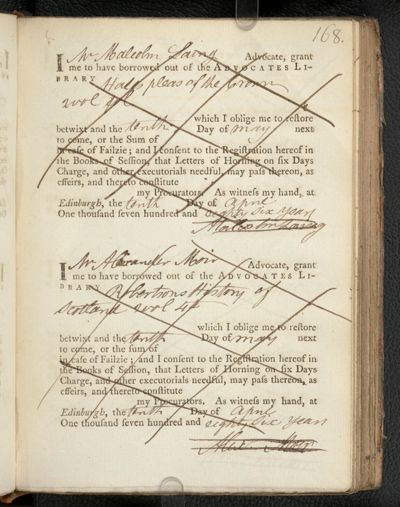 168.
I Mr Malcolm Laing Advocate, grant
me to have borrowed out of the ADVOCATES LI-
BRARY Hales pleas of the Crown
2 vol
which I oblige me to reſtore
betwixt and the tenth Day of may next
to come, or the Sum of
in caſe of Failzie; and I conſent to the Regiſtration hereof in
the Books of Seſſion, that Letters of Horning on ſix Days
Charge, and other executorials needful, may paſs thereon, as
effeirs, and thereto conſtitute
my Procurators. As witneſs my hand, at
Edinburgh, the tenth Day of Aprie
One thouſand ſeven hundred and eighty six years
Malcolm Laing
I Mr Alexander Moir Advocate, grant
me to have borrowed out of the ADVOCATES LI-
BRARY Robertsons History of
Scotland 2 vol 4to
which I oblige me to reſtore
betwixt and the tenth Day of may next
to come, or the ſum of
in caſe of Failzie; and I conſent to the Regiſtration hereof in
the Books of Seſſion, that Letters of Horning on ſix Days
Charge, and other executorials needful, may paſs thereon, as
effeirs, and thereto conſtitute
my Procurators. As witneſs my hand, at
Edinburgh, the tenth Day of Aprie
One thouſand ſeven hundred and eighty six years